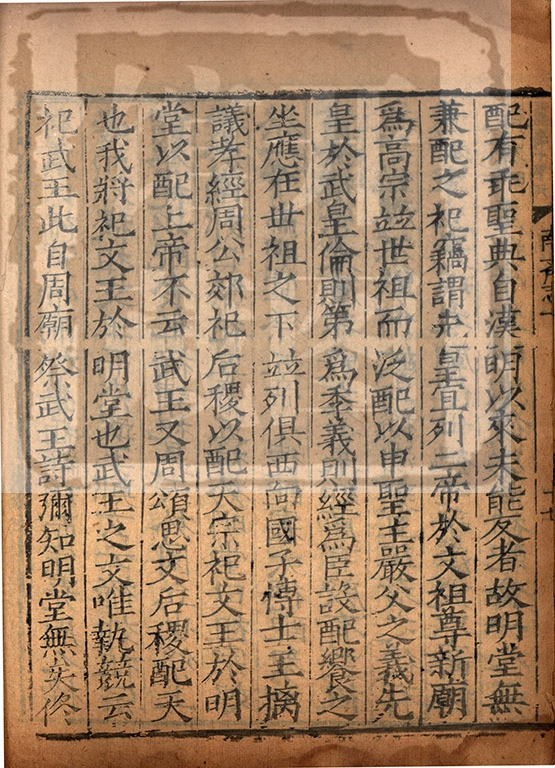 配有乖聖典自漢明以來未能反者故明堂無
兼配之祀竊謂先皇宜列二帝於文祖尊新廟
爲高宗竝世祖而泛配以申聖主嚴父之義先
皇於武皇倫則第爲季義則經爲臣設配饗之
坐應在世祖之下竝列俱西向國子博士王摛
議孝經周公郊祀后稷以配天宗祀文王於明
堂以配上帝不云武王又周頌思文后稷配天
也我將祀文王於明堂也武王之文唯執競云
祀武王此自周廟祭武王詩彌知明堂無矣佟